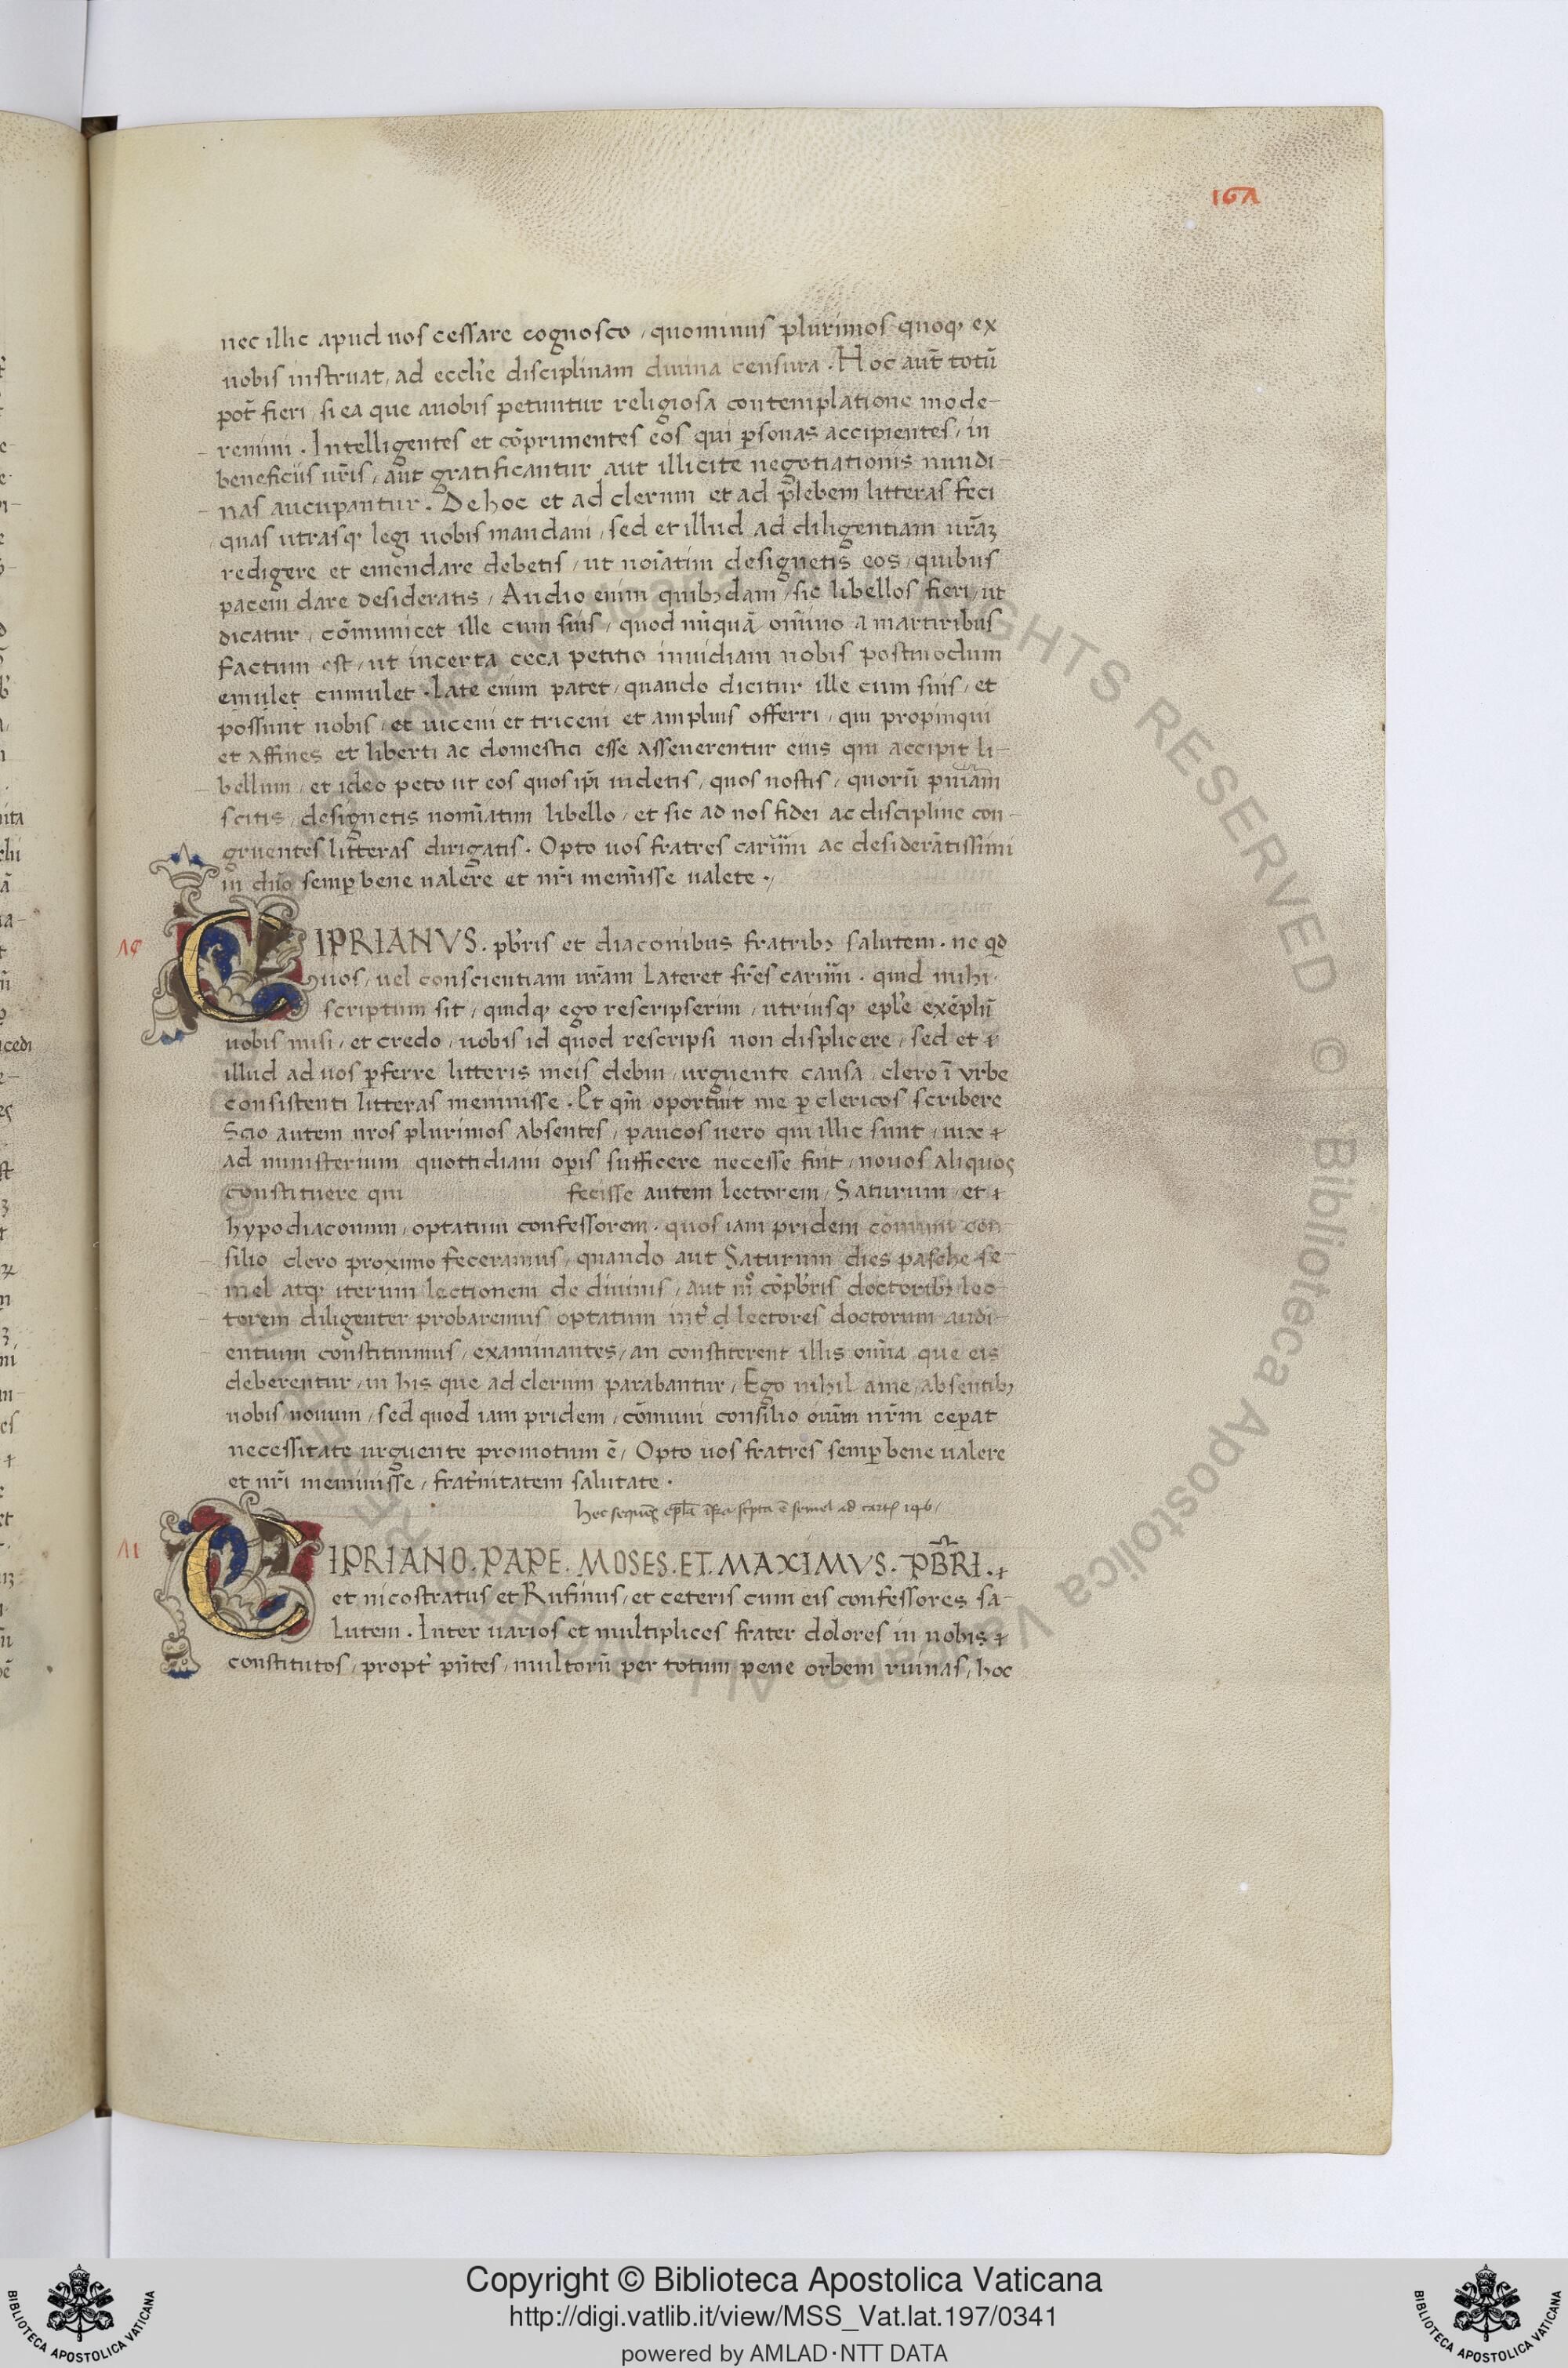 167
nec illic apud uos cessare cognosco / quominus plurimos quoqꝫ ex
uobis instruat, ad eccl'ie disciplinam diuina censura . Hoc aut̄ totū
pot̄ fieri / si ea que auobis petuntur religiosa contemplatione mode-
remini . Intelligentes et cōprimentes eos qui ꝑsonas accipientes / in
beneficiis ur̄is / aut gratificantur aut illicite negotiationis nundi-
nas aucupantur . De hoc et ad clerum et ad plebem litteras feci
quas utrasqꝫ legi uobis mandani / sed et illud ad diligentiam ur̄aꝫ
redigere et emendare debetis / ut noīatim designetis eos / quibus
pacem dare desideratis / Audio enim quibꝫdam / sic libellos fieri / ut
dicatur / cōmunicet ille cum suis / quod nūquā om̄ino a martiribus
factum est / ut incerta ceca petitio inuidiam nobis postmodum
emulet cumulet . Late enim patet / quando dicitur ille cum suis / et
possunt nobis / et uiceni et triceni et amplius offerri / qui propinqui
et affines et liberti ac domestici esse asseuerentur eius qui accipit li-
bellum / et ideo peto ut eos quos ip̄i uidetis / quos nostis / quorū pn̄iam
scitis / designetis nomīatim libello / et sic ad nos fidei ac discipline con-
gruentes litteras dirigatis . Opto uos fratres cariss̄imi ac desiderātissimi
in dn̄o semꝑ bene ualere et nr̄i memīsse ualete .
10
CIPRIANVS . pb̄ris et diaconibus fratribꝫ salutem . ne qd
uos / uel conscientiam ur̄am Lateret fr̄es carim̄i . quid mihi
scriptum sit / quidqꝫ ego rescripserim / utriusqꝫ epl'e exēplū
uobis misi / et credo / uobis id quod rescripsi non displicere / sed et
illud ad uos ꝑferre litteris meis debui / urguente causa / clero ī vrbe
consistenti litteras meminisse . Et qm̄ oportuit me ꝑ clericos scribere
Scio autem nros plurimos absentes / paucos uero qui illic sunt / uix
ad ministerium quottidiani oꝑis sufficere necesse fuit / nouos aliquos
constituere qui fecisse autem lectorem / Saturum / et
hypodiaconum / optatum confessorem . quos iam pridem cōmuni con
silio clero proximo feceramus / quando aut Saturum dies pasche se-
mel atqꝫ iterum lectionem de diuinis / aut mº cōpb̄ris doctoribꝫ lec-
torem diligenter probaremus optatum int' d lectores doctorum audi-
entium constituimus / examinantes / an constiterent illis om̄ia que eis
deberentur / in his que ad clerum parabantur / Ego nihil ame / absentibꝫ
nobis / nouum / sed quod iam pridem / cōmuni consilio om̄im nr̄m ceperat
necessitate urguente promotum ē / Opto uos fratres semꝑ bene ualere
et nr̄i meminisse / frat'nitatem salutate .
hec sequēs epl̄a īfra sc̄pta ē semel ad cart 146 /
11
CIPRIANO . PAPE . MOSES . ET . MAXIMVS . PB̄RI .
et nicostratus et Rufinus / et ceteris cum eis confessores sa-
lutem . Inter uarios et multiplices frater dolores in nobis
constitutos / propt' pn̄tes / multorū per totum pene orbem ruinas / hoc
Copyright © Biblioteca Apostolica Vaticana
http://digi.vatlib.it/view/MSS_Vat.lat.197/0341
powered by AMLAD·NTT DATA
BIBLIOTECA APOSTOLICA VATICANA
BIBLIOTECA APOSTOLICA VATICANA